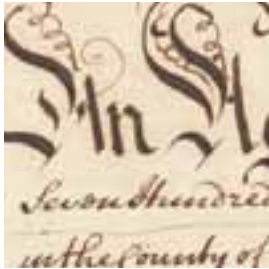 In
Seven Hundred
in the County of